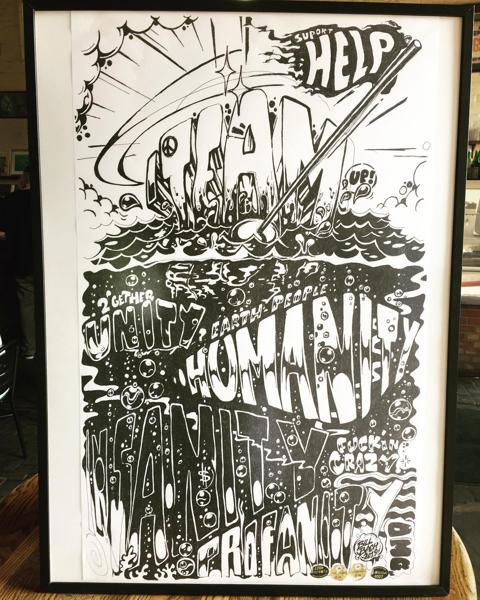 SUPORT
HELP
TEAM
UP!
2GETHER
UNITY
EARTH-PEOPLE
HUMANITY
FUCKIN
CRAZY
PROFANITY